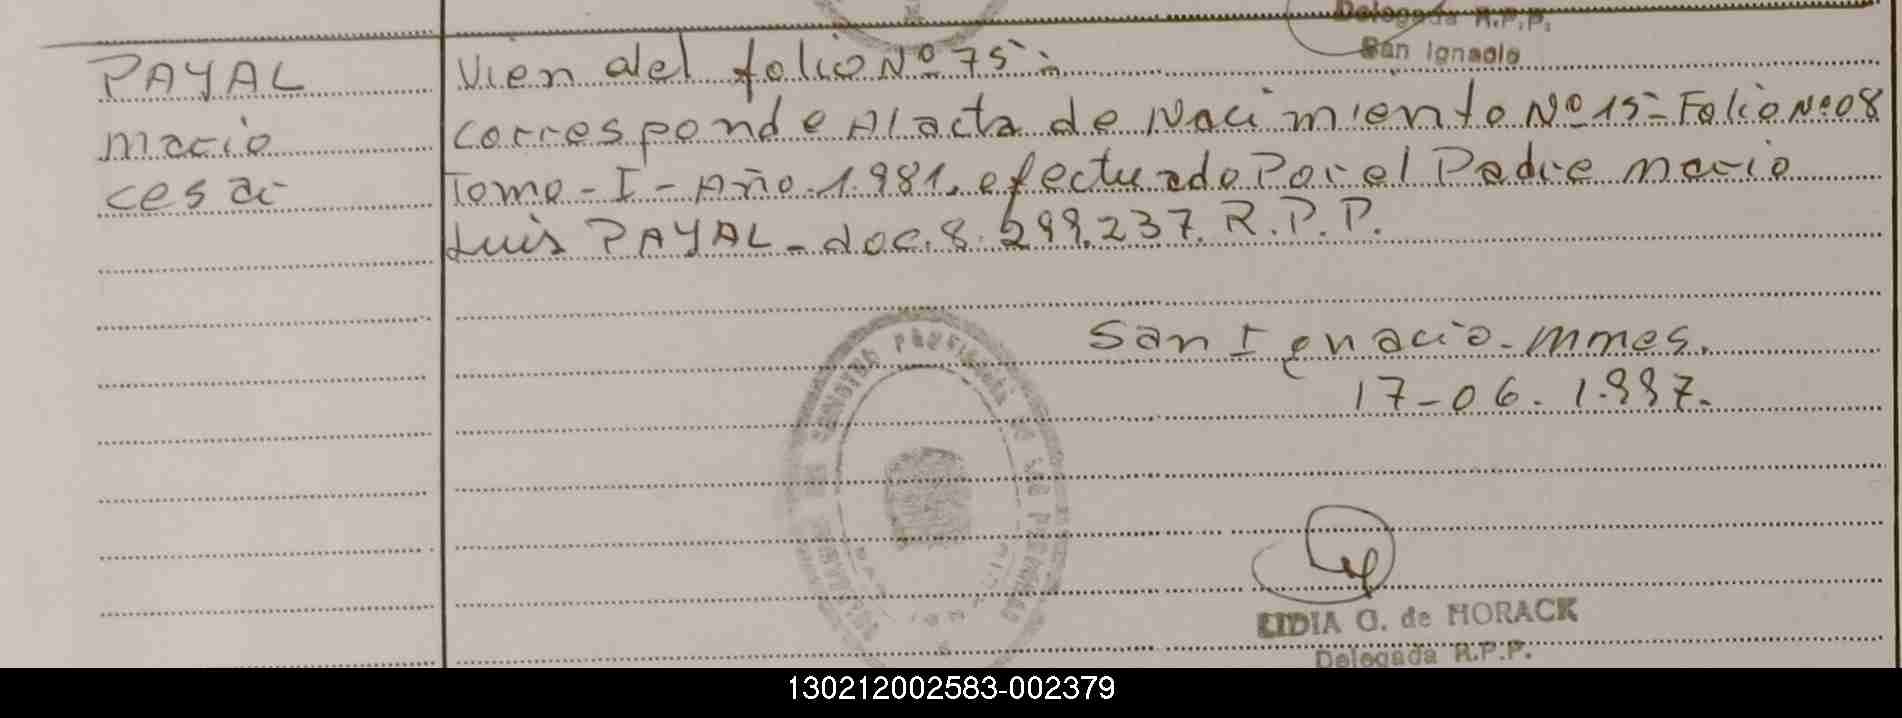 Delegada R.P.P.
San Ignacio
PAYAL
mario
cesar
Vien del folio Nº 75-
corresponde Al acta de Nacimiento Nº 15- Folio Nº 08
Tomo - I - Año 1.981. efectuado Por el Padre mario
Luis PAYAL - doc. 8.299.237. R.P.P.
San Ignacio - mnes.
17-06.1.997.
REGISTRO PROVINCIAL DE LAS PERSONAS
LIDIA G. de HORACK
Delegada R.P.P.
130212002583-002379